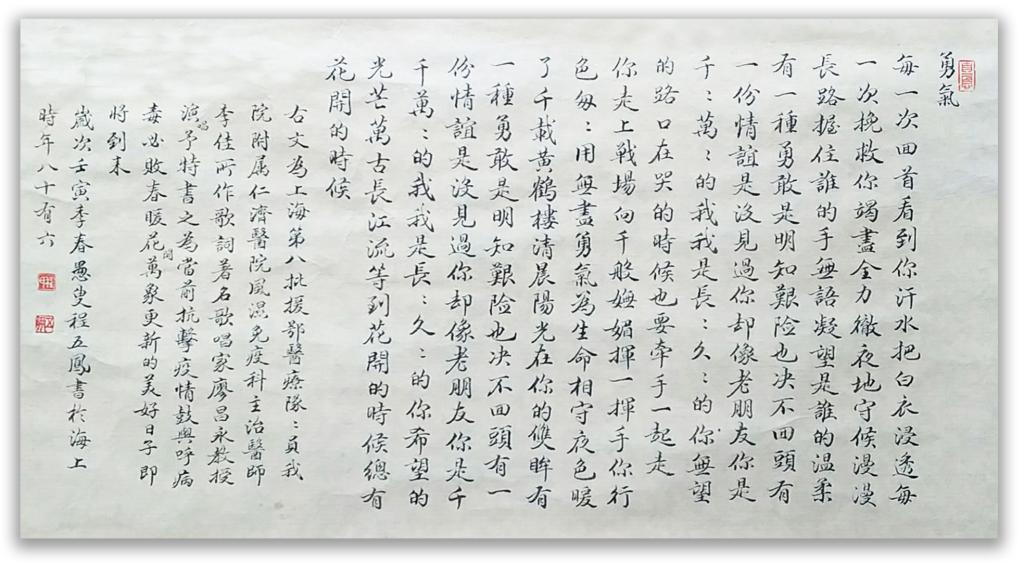 勇氣
每一次回首看到你汗水把白衣浸透每
一次挽救你竭盡全力徹夜地守候漫漫
長路握住誰的手無語凝望是誰的温柔
有一種勇敢是明知艱险也决不回頭有
一份情誼是没見過你却像老朋友你是
千：萬：的我我是長：久：的你無望
的路口在哭的時候也要牽手一起走
你走上戰場向千般嫵媚揮一揮手你行
色匆：用無盡勇氣為生命相守夜色暖
了千載黄鶴樓清晨陽光在你的雙眸有
一種勇敢是明知艱险也决不回頭有一
份情誼是没見過你却像老朋友你是千
千萬：的我我是長：久：的你希望的
光芒萬古長江流等到花開的時候總有
花開的時候
右文為上海第八批援鄂醫療隊：員我
院附属仁濟醫院風濕免疫科主治醫師
李佳所作歌詞著名歌唱家廖昌永教授
演唱予特書之為當前抗擊疫情鼓與呼病
毒必敗春暖花開萬象更新的美好日子即
将到来
歲次壬寅季春愚叟程五鳳書於海上
時年八十有六